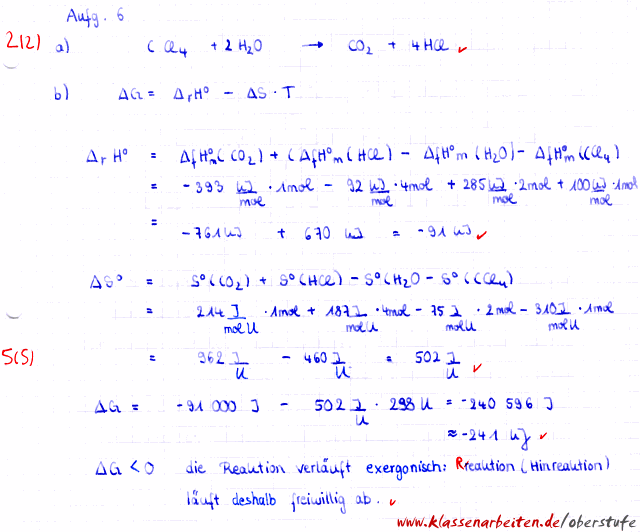 Aufg. 6
2(2) a) CCl₄ + 2 H₂O → CO₂ + 4 HCl ✓
b) ΔG = ΔrH° - ΔS · T
ΔrH° = ΔfH°m(CO₂) + (ΔfH°m(HCl) - ΔfH°m(H₂O) - ΔfH°m(CCl₄)
= -393 kJ/mol · 1mol - 92 kJ/mol · 4mol + 285 kJ/mol · 2mol + 100 kJ/mol · 1mol
= -761 kJ + 670 kJ = -91 kJ ✓
ΔS° = S°(CO₂) + S°(HCl) - S°(H₂O - S°(CCl₄)
= 214 J/molK · 1mol + 187 J/molK · 4mol - 75 J/molK · 2mol - 310 J/molK · 1mol
5(5) = 962 J/K - 460 J/K = 502 J/K ✓
ΔG = -91 000 J - 502 J/K · 298 K = -240 596 J
≈ -241 kJ ✓
ΔG < 0 die Reaktion verläuft exergonisch: Rreaktion (Hinreaktion)
läuft deshalb freiwillig ab. ✓
www.klassenarbeiten.de/oberstufe